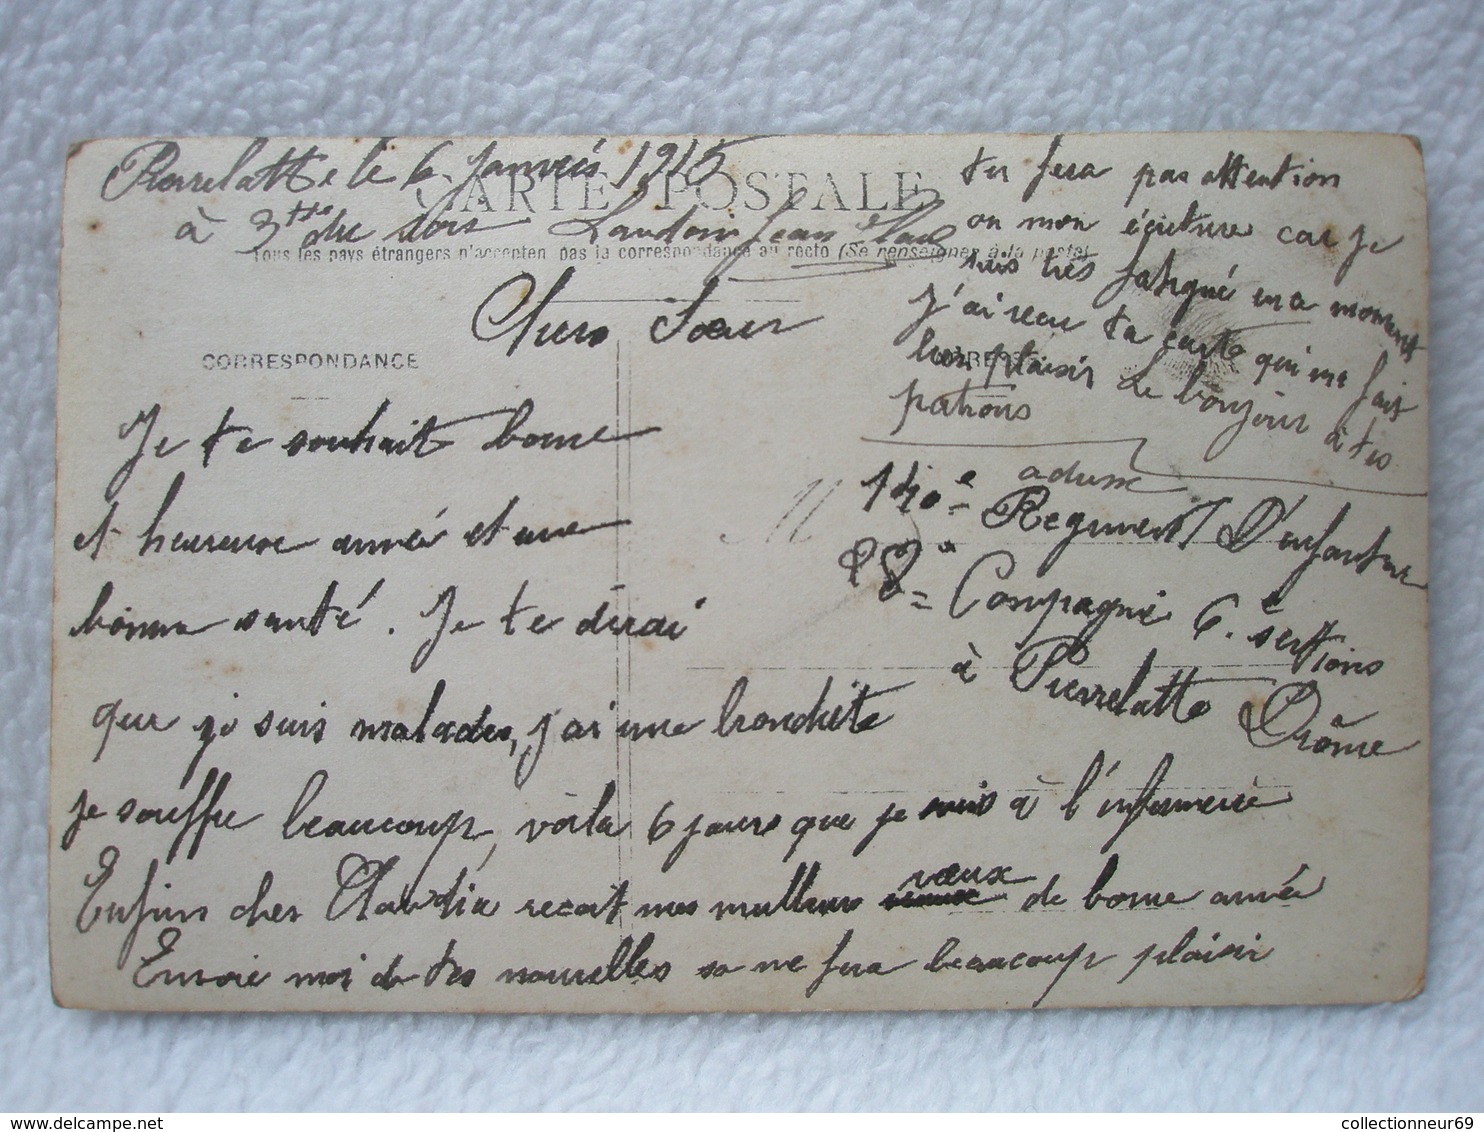 Pierrelatte le 6 Janviés 1915
CARTE POSTALE
à 3 du soir Jean
Tous les pays étrangers n'acceptent pas la correspondance au recto (Se renseigner à la poste)
Chero Sœur
CORRESPONDANCE
Je te souhait bonne
et heureuse année et une
bonne santé. Je te dirai
que je suis malades, j'ai une bronchite
je souffre beaucoup, voila 6 jours que je suis à l'infermerie
Enfin cher Claudia recoit mes meilleurs vœux de bonne année
Envoie moi de tes nouvelles sa me fera beaucoup plaisir
tu fera pas attention
on mon écriture car je
suis très fatigué en a moment
J'ai recu ta carte qui me fait
bon plaisir Le bonjour à tes
patrons
adresse
140e Regiment D'enfanterie
28e Compagnie 6. sections
à Pierrelatte Drôme
M